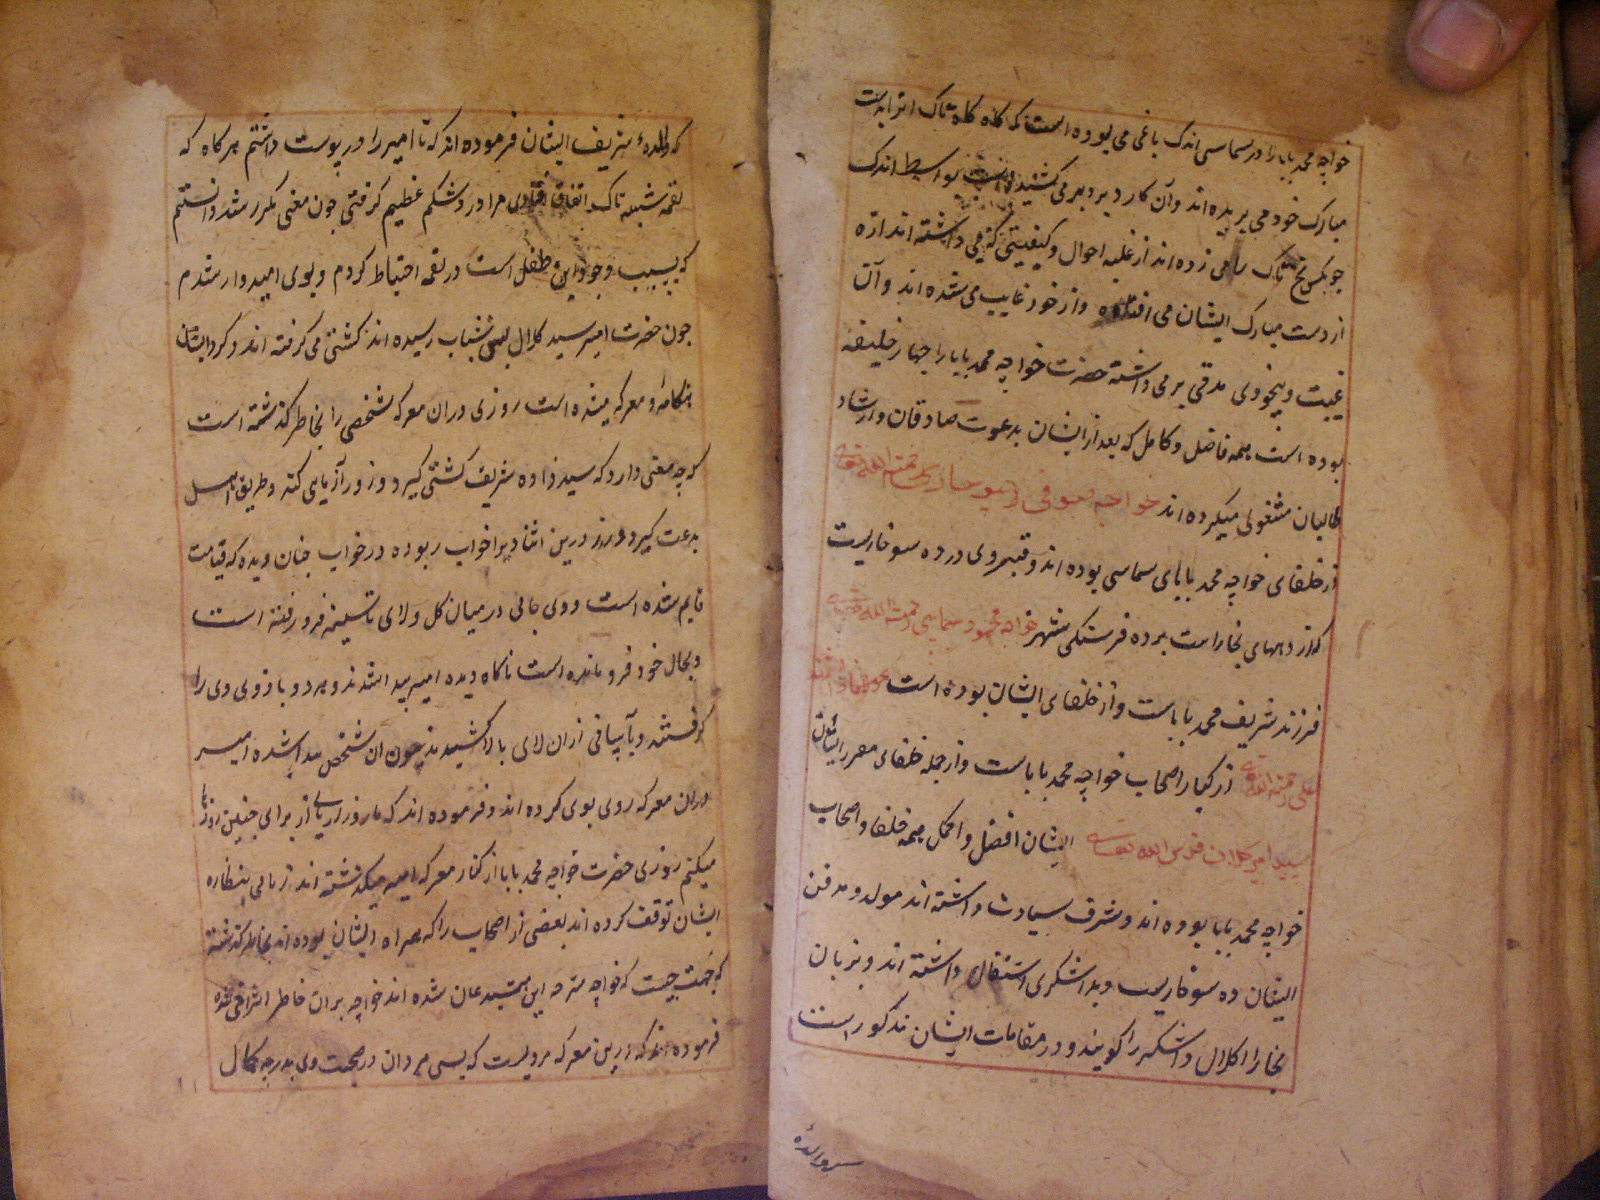 خواجه محمد بابا را در سماسی اندک باغی می بوده است که گاه گاه تاک انرا بدست
مبارک خود می بریده اند وآن کار دیر دیر می کشیده بواسطه اندک
چون یکی تاک را می زده اند از غلبه احوال وکیفیتی که می داشته اند اره
از دست مبارک ایشان می افتاده واز خود غایب می شده اند وآن
غیبت وبیخودی مدتی برمی داشته حضرت خواجه محمد بابا را چهار خلیفه
بوده است همه فاضل وکامل که بعد از ایشان بدعوت صادقان وارشاد
طالبان مشغولی میکرده اند خواجه صوفی سوخاری رحمة الله تعالی
از خلفای خواجه محمد بابای سماسی بوده اند وقبر وی در ده سوخاریست
که از دههای بخاراست بر ده فرسنگی شهر خواجه محمود سماسی رحمة الله تعالی
فرزند شریف محمد باباست واز خلفای ایشان بوده است مولانا دانشمند
علی رحمة الله تعالی از کبار اصحاب خواجه محمد باباست واز جمله خلفای مقرر ایشان
سید امیر کلال قدس الله تعالی ایشان افضل واکمل همه خلفا واصحاب
خواجه محمد بابا بوده اند وشرف سیادت داشته اند مولد ومدفن
ایشان ده سوخاریست وبداشگری اشتغال داشته اند وبزبان
بخارا کلال داشگر را کویند ودر مقامات ایشان مذکور است
که والدهٔ شریف ایشان فرموده اند که تا امیر را در پوست داشتم هرکاه که
لقمه شبهه ناک اتفاق افتادی مرا درد شکم عظیم کرفتی چون معنی مکرر شد دانستم
که بسبب وجود این طفل است در لقمه احتیاط کردم وبوی امیدوار شدم
چون حضرت امیر سید کلال بسن شباب رسیده اند کشتی می کرفته اند وکرد ایشان
هنکامه ومعرکه میشده است روزی دران معرکه شخصی را بخاطر کذشته است
که چه معنی دارد که سید زاده شریف کشتی کیرد وزور آزمایی کند وطریق اهل
بدعت کیرد ورزد درین اثنا ویرا خواب ربوده در خواب چنان دیده که قیامت
قایم شده است ووی جایی در میان کل ولای تا سینه فرو رفته است
وبحال خود فرو مانده است ناکاه دیده امیر پیدا شدند وهر دو بازوی وی را
کرفتند وبآسانی ازان لای بالا کشیدند چون ان شخص بیدار شده امیر
دران معرکه روی بوی کرده اند وفرموده اند که ما زور ازمایی از برای چنین روز
میکنم روزی حضرت خواجه محمد بابا از کنار معرکه امیر میکذشته اند زمانی بنظاره
ایشان توقف کرده اند بعضی از اصحاب را که همراه ایشان بوده اند بخاطر کذشته
که جهت چیست که خواجه متوجه این مبتدعان شده اند خواجه بران خاطر اشراف شده
فرموده اند که درین معرکه مردیست که بسی مردان در صحبت وی بدرجه کمال